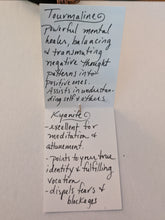 Tourmaline
powerful mental
healer, balancing
& transmuting
negative thought
patterns into
positive ones.
Assists in understan-
ding self & others.
Kyanite
-excellent for
meditation &
attunement.
-points to your true
identity & fulfilling
vocation.
-dispels fears &
blockages